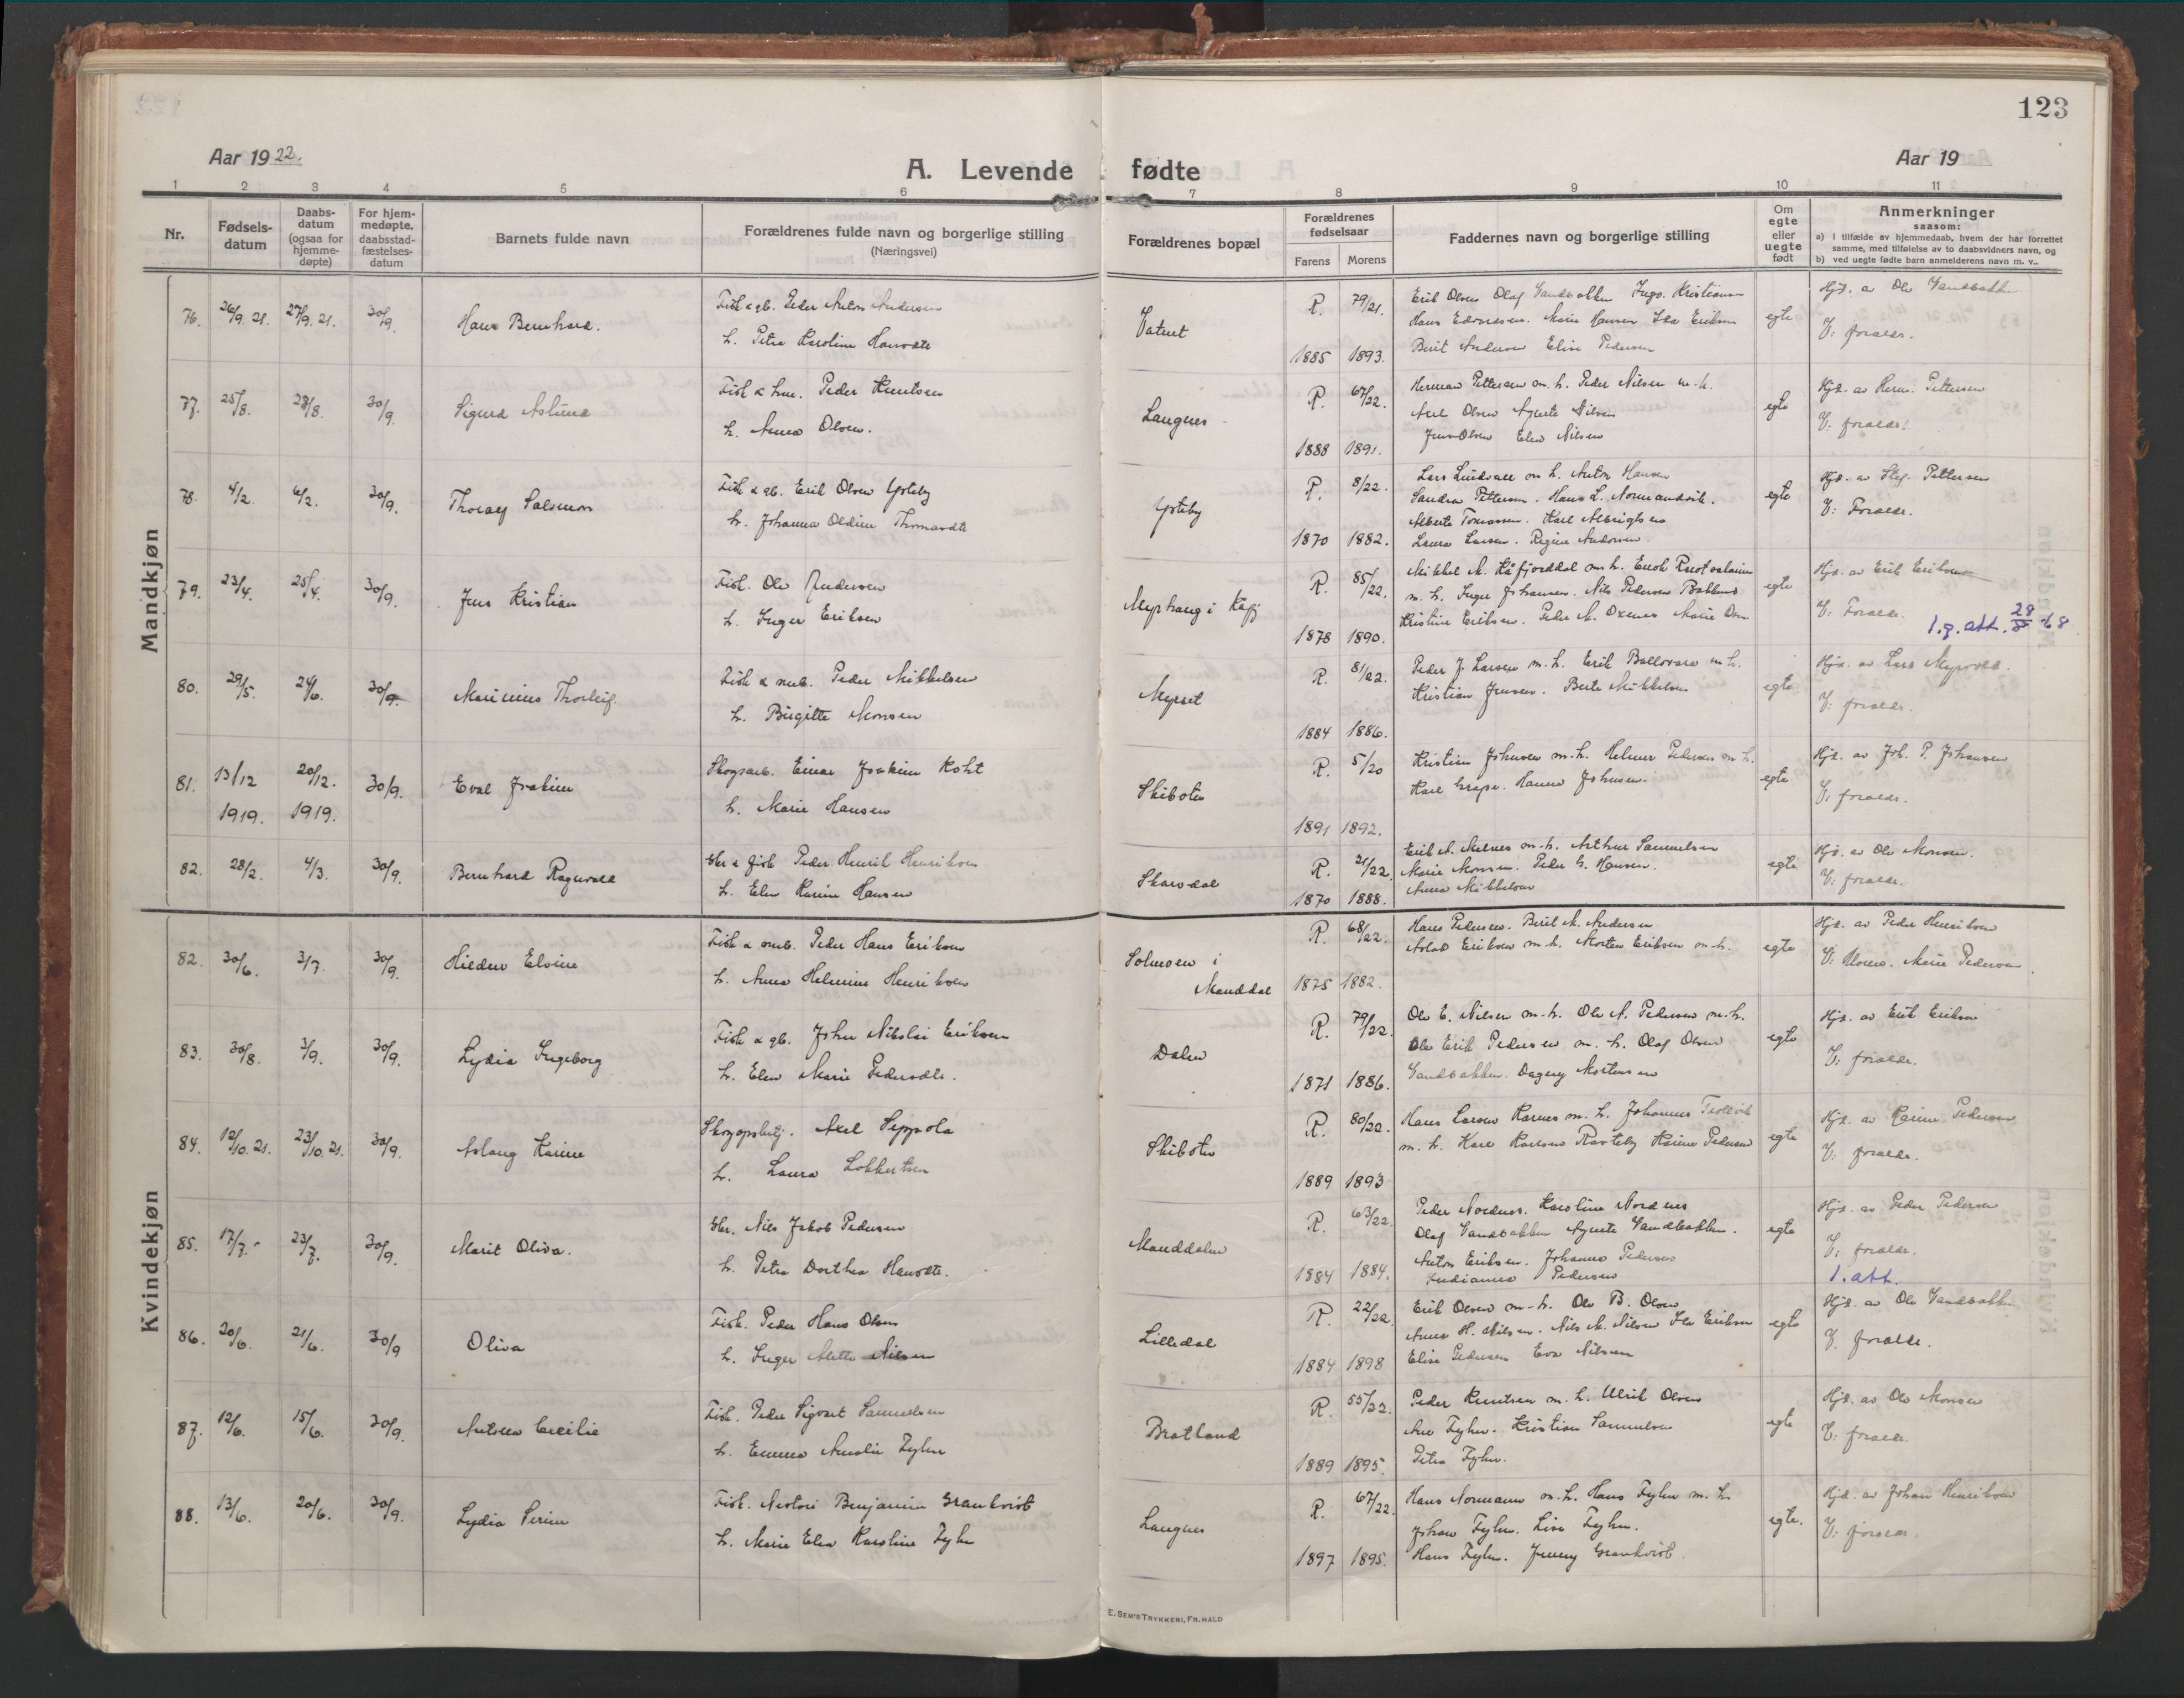 123
Aar 1922.
A. Levende fødte
Aar 19
1 2 3 4 5 6 7 8 9 10 11
Nr.
Fødsels-
datum
Daabs-
datum
(ogsaa for
hjemme-
døpte)
For hjem-
medøpte,
daabsstad-
fæstelses-
datum
Barnets fulde navn
Forældrenes fulde navn og borgerlige stilling
(Næringsvei)
Forældrenes bopæl
Forældrenes
fødselsaar
Farens Morens
Faddernes navn og borgerlige stilling
Om
egte
eller
uegte
født
Anmerkninger
saasom:
a) i tilfælde av hjemmedaab, hvem der har forrettet
samme, med tilføielse av to daabsvidners navn, og
b) ved uegte fødte barn anmelderens navn m. v..
Mandkjøn
76. 26/9. 21. 27/9. 21. 30/9. Hans Bernhard.
Fisk & gb. Peder Anton Andersen
h. Petra Karoline Hansdtr
R. 79/21.
1885 1893.
Erik Olsen Olaf Sandbakken Inga Kristiansen
Hans Edvardsen. Marie Hansen Ida Eriksen
Berit Andersen Elise Pedersen
egte
Hjd. av Ole Sandbakken
V: forældr.
77. 25/8. 28/8. 30/9. Sigurd Aslund
Fisk & hm. Peder Knutsen
h. Anna Olsen.
Langnes
R. 67/22.
1888 1891.
Herman Pettersen m. h. Peder Nilsen m. h.
Axel Olsen Agnete Nilsen
Jens Olsen Elen Nilsen
egte
Hjd. av Herm. Pettersen
V: forældr.
78. 4/2. 6/2. 30/9. Thoralf Salomon
Fisk & gb. Erik Olsen Ysteby
h. Johanna Oldine Thomasdtr
Ysteby
R. 8/22.
1870 1882.
Lars Lindvall m. h. Anton Hansen
Sandra Pettersen. Hans L. Normandvik.
Alberte Tomassen. Karl Albrigtsen
Laura Larsen. Regine Andersen.
egte
Hjd. av Pettersen
V: Forældr.
79. 23/4. 25/4. 30/9. Jens Kristian
Fisk. Ole Andersen
h. Inger Eriksen
Myrhaug i Kåfj
R. 85/22.
1878 1890.
Mikkel M. Kåfjorddal m. h. Enok
m. h. Inger Johansen. Nils Pedersen Bakland
Kristine Eriksen. Peder A. Oxenes Marie
egte
Hjd. av Erik Eriksen
V: Forældr.
1.g. att. 28/8-68
80. 29/5. 24/6. 30/9. Marinius Thorleif.
Fisk & snek. Peder Mikkelsen
h. Birgitte Monsen
Myrset
R. 81/22.
1884 1886.
Peder J. Larsen m. h. Erik Ballovara m. h.
Kristian Jensen. Berte Mikkelsen
egte
Hjd. av Lars Myrvold.
V: forældr.
81. 13/12 1919. 20/12. 1919. 30/9. Eval Joakim
Skogsarb. Einar Joakim Koht
h. Marie Hansen
Skiboten
R. 5/20
1891 1892.
Kristian Johnsen m. h. Helmer Pedersen m. h.
Karl Grape. Hanna Johnsen.
egte
Hjd. av Joh. P. Johansen
V: forældr.
82. 28/2. 4/3. 30/9. Bernhard Ragnvald
Gbr & fisk Peder Henrik Henriksen
h. Elen Karine Hansen
Skardal
R. 21/22.
1870 1888.
Erik A. Melnes m. h. Arthur Samuelsen
Marie Monsen. Peder G. Hansen.
Anna Mikkelsen
egte
Hjd. av Ole Monsen.
V: forældr.
Kvindekjøn
82. 30/6. 3/7. 30/9. Hildur Elvine
Fisk & snek. Peder Hans Eriksen
h. Anna Helmine Henriksen
Solmoen i
Manddal
R. 68/22.
1875 1882.
Hans Pedersen. Berit M. Andersen
Aslak Eriksen m. h. Morten Eriksen m. h.
egte
Hjd. av Peder Henriksen
V: Moren. Marie Pedersen.
83. 30/8. 3/9. 30/9. Lydia Ingeborg
Fisk & gb. John Nikolai Eriksen
h. Elen Marie Pedersdtr.
Dalen
R. 79/22.
1871 1886.
Ole E. Nilsen m. h. Ole A. Pedersen m. h.
Ole Erik Pedersen m. h. Olaf Olsen
Sandbakken. Dagny Mortensen
egte
Hjd. av Erik Eriksen
V: forældr.
84. 12/10. 21. 23/10. 21. 30/9. Aslaug Karine
Skogopsbetj. Axel Seppola
h. Laura Lokkertsen
Skiboten
R. 80/22.
1889 1893
Hans Larsen Karnes m. h. Johannes Trollvik
m. h. Karl Karlsen Rasteby Karine Pedersen
egte
Hjd. av Karine Pedersen
V: forældr.
85. 17/7. 23/7. 30/9. Marit Oliva.
Gbr. Nils Jakob Pedersen
h. Petra Dorthea Hansdtr.
Manddalen
R. 63/22.
1884 1884.
Peder Nordnes. Karoline Nordnes
Olaf Sandbakken Agnete Sandbakken.
Anton Eriksen. Johanna Pedersen
Indianna Pedersen
egte
Hjd. av Peder Pedersen
V: forældr.
1. att.
86. 20/6. 21/6. 30/9 Oliva
Fisk. Peder Hans Olsen
h. Inger Alette Nilsen
Lilledal
R. 22/22
1884 1898
Erik Olsen m. h. Ole B. Olsen
Anna H. Nilsen. Nils M. Nilsen Ida Eriksen
Elise Pedersen Eva Nilsen
egte
Hjd. av Ole Sandbakken
V. forældr.
87. 12/6. 15/6. 30/9. Antona Cecilie
Fisk. Peder Sigvart Samuelsen
h. Emma Amalie Fyhn
Bratland
R. 55/22.
1889 1895.
Peder Knutsen m. h. Ulrik Olsen
Ane Fyhn. Kristian Samuelsen
Petra Fyhn.
egte
Hjd. av Ole Monsen
V: forældr.
88. 13/6. 20/6. 30/9. Lydia Serine
Fisk. Nestori Benjamin Grankvist
h. Marie Elen Karoline Fyhn
Langnes
R. 67/22.
1897 1895.
Hans Normann m. h. Hans Fyhn m. h.
Johan Fyhn. Lise Fyhn.
Hans Fyhn. Jenny Grankvist.
egte.
Hjd. av Johan Henriksen
V: forældr.
E. SEM'S TRYKKERI, FR.HALD